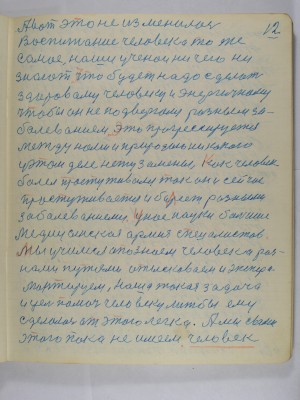 12.
А вот это не изменилось
Воспитание человека то же
самое, наши ученои ничего ни
знают что будет надо сделат
здоровому человеку и энергичному
чтобы он не подвергался разным за-
болеванием. Это прогрессируется
между нами и природаю никакого
в этом деле нету замены. Как человек
болел простуживался так он и сейчас
простуживается и болеет разными
заболеваниями. У нас науки больше
Медицинская армия специалистов.
Мы учимся а познаем человека раз-
ными путями отыскиваем и экспри-
мортируем, наша такая задача
и цел помоч человеку чтобы ему
сделалос от этого легко. А мы свами
этого пока не имеем человек